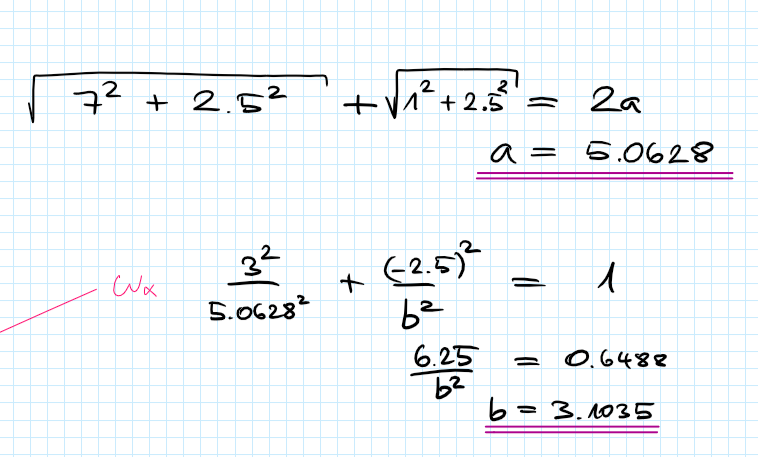 √(7² + 2.5²) + √(1² + 2.5²) = 2a
a = 5.0628
ωα 3²/5.0628² + (-2.5)²/b² = 1
6.25/b² = 0.6488
b = 3.1035